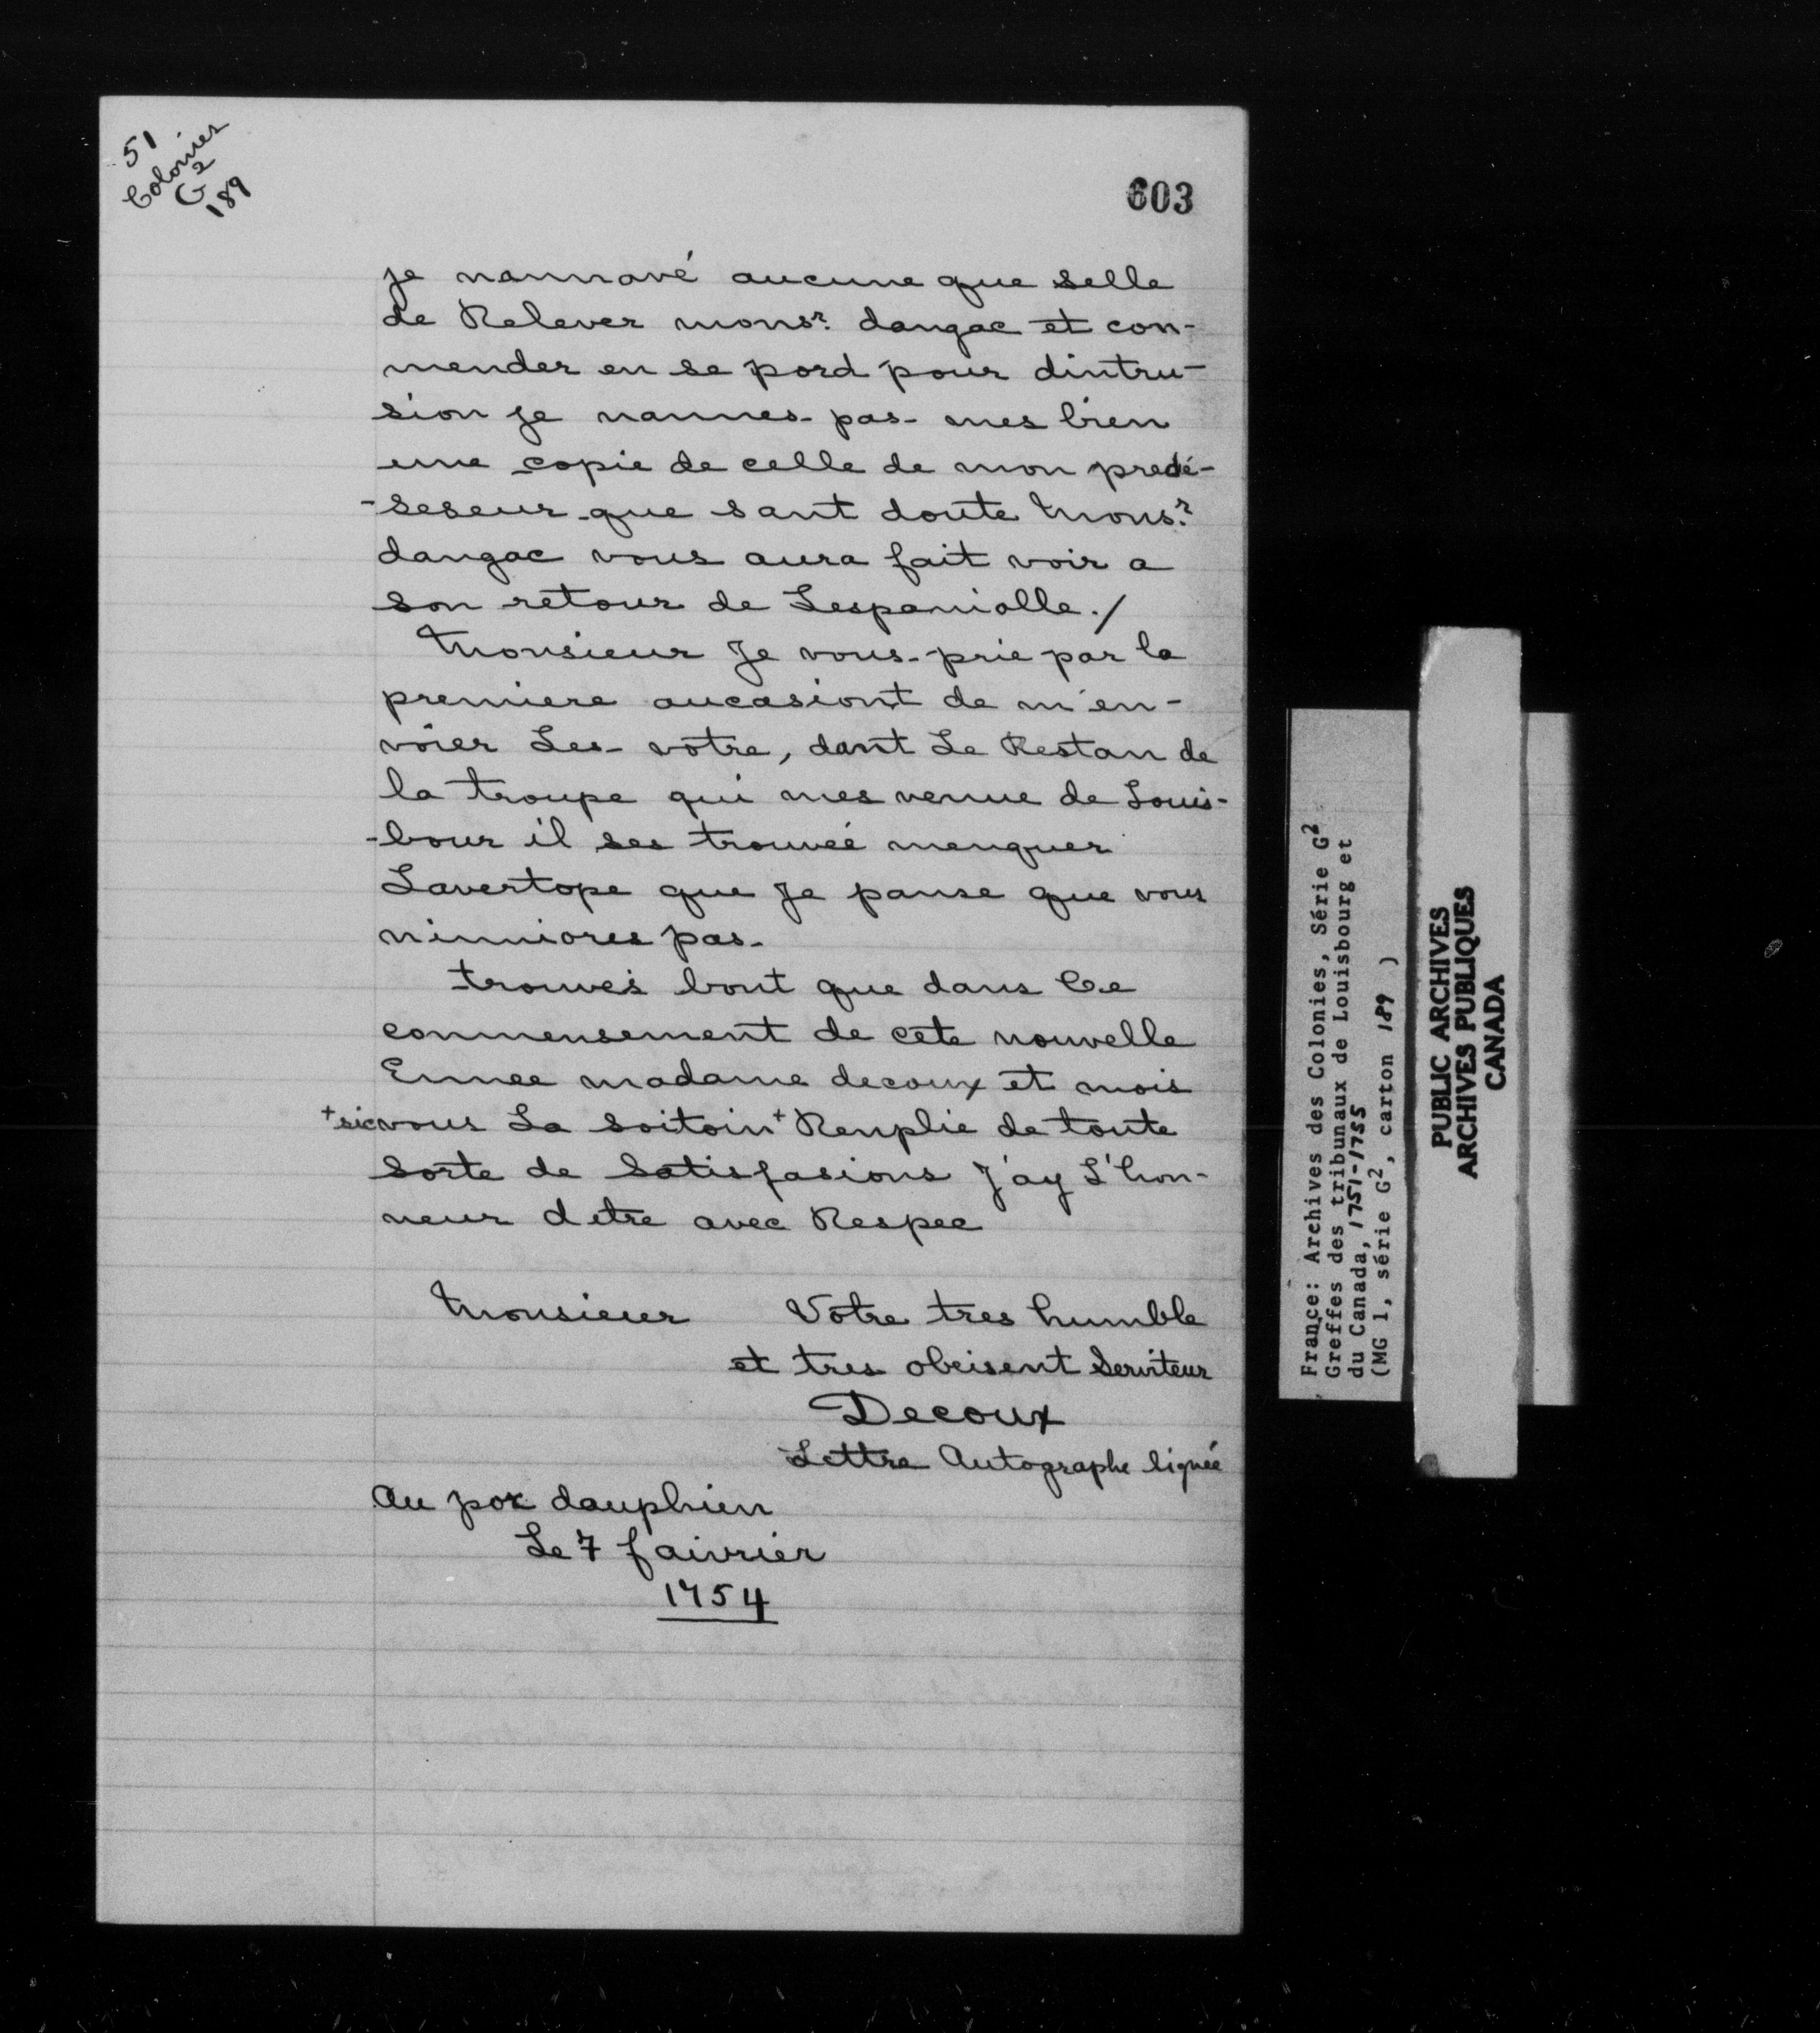 51
Colonies
G2
189
603
je nannavé aucune que selle
de Relever monsr. dangac et con-
mender en se pord pour dintru-
sion je nannes pas mes bien
une copie de celle de mon predé-
-seseur que sant doute Monsr.
dangac vous aura fait voir a
son retour de Lespaniolle./
Monsieur Je vous prie par la
premiere aucasiont de m'en-
voier Les votre, dant Le Restan de
la troupe qui mes venue de Louis-
-bour il ses trouvéé menquer
Lavertope que Je panse que vous
ninniores pas.
trouvés bont que dans Ce
conmensement de cete nouvelle
Ennee madame decoux et mois
+sic vous La soitoin+ Renplie de toute
sorte de Satisfasions J'ay L'hon-
neur detre avec Respec
Monsieur Votre tres humble
et tres obeisent Serviteur
Decoux
Lettre Autographe signée
Au por dauphien
Le 7 faivrier
1754
France: Archives des Colonies, Série G2
Greffes des tribunaux de Louisbourg et
du Canada, 1751-1755
(MG 1, série G2, carton 189 )
PUBLIC ARCHIVES
ARCHIVES PUBLIQUES
CANADA